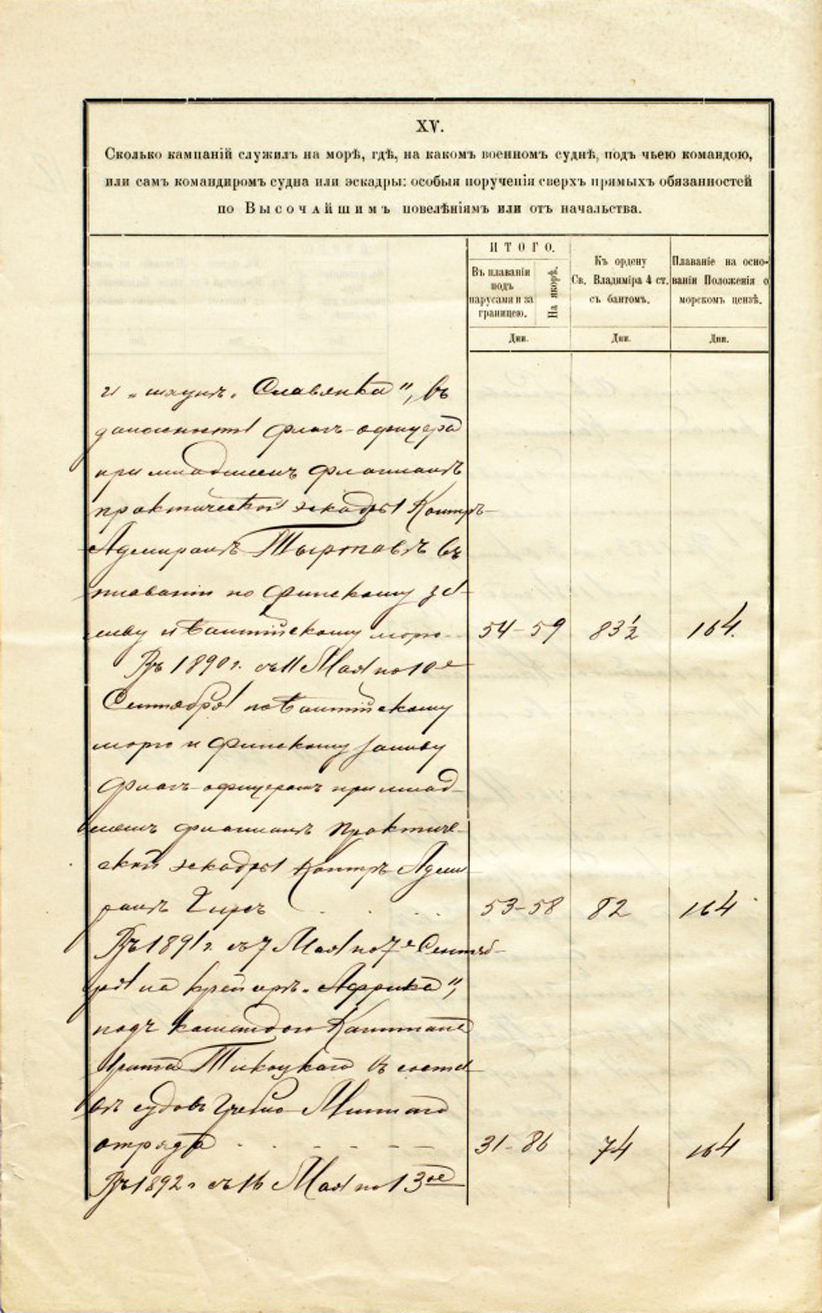 XV.
Сколько кампаній служилъ на морѣ, гдѣ, на какомъ военномъ суднѣ, подъ чьею командою,
или самъ командиромъ судна или эскадры: особыя порученія сверхъ прямыхъ обязанностей
по Высочайшимъ повелѣніямъ или отъ начальства.
ИТОГО.
Въ плаваніи подъ парусами и за границею.
На якорѣ.
Къ ордену Св. Владиміра 4 ст. съ бантомъ.
Плаваніе на основаніи Положенія о морскомъ цензѣ.
Дни.
Дни.
Дни.
и „шхунѣ „Славянка“, въ
должности флагъ-офицера
при младшемъ флагманѣ
практической эскадры Контръ-
Адмиралѣ Тыртовѣ въ
плаваніи по Финскому за-
ливу и Балтійскому морю 54-59 83½ 164.
Въ 1890 г. съ 11 Мая по 10е
Сентября по Балтійскому
морю и Финскому заливу
флагъ-офицеромъ при млад-
шемъ флагманѣ Практиче-
ской эскадры Контръ Адми-
ралѣ Гирсъ . . . . 53-58 82 164
Въ 1891 г. съ 7 Мая по 7е Сентяб-
ря на крейсерѣ „Африка“,
подъ командою Капитана
1 ранга Тикоцкаго въ соста-
вѣ судовъ Учебно-Миннаго
отряда - - - - - - 31-86 74 164
Въ 1892 г. съ 16 Мая по 13ое